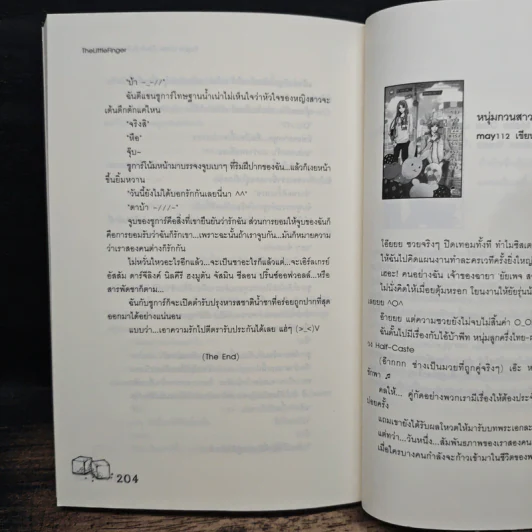 TheLittleFinger
"บ้า -_-//"
ฉันตีแขนชูการ์โทษฐานน้ำเน่าไม่เห็นใจว่าหัวใจของหญิงสาวจะ
เต้นตึกตักแค่ไหน
"จริงสิ"
"หือ"
จุ๊บ~
ชูการ์โน้มหน้ามาบรรจงจูบเบาๆ ที่ริมฝีปากของฉัน...แล้วก็เงยหน้า
ขึ้นยิ้มหวาน
"วันนี้ยังไม่ได้บอกรักกันเลยนี่นา ^^"
"ตาบ้า -///-"
จูบของชูการ์คือสิ่งที่เขายืนยันว่ารักฉัน ส่วนการยอมให้จูบของฉันก็
คือการยอมรับว่าฉันก็รักเขา...เพราะฉะนั้นถ้าเราจูบกัน...มันก็หมายความ
ว่าเราสองคนต่างก็รักกัน
ไม่หวั่นไหวอะไรอีกแล้ว...จะเป็นชาอะไรก็แล้วแต่...จะเอิร์ลเกรย์
อัสสัม ดาร์จีลิงค์ นิลคีรี ฮงมูตัน จัสมิน ซีลอน ปริ๊นซ์ออฟวอลล์...หรือ
สารพัดชาก็ตาม...
ฉันกับชูการ์ก็จะเปิดตำรับปรุงหารสชาติน้ำชาที่อร่อยถูกปากที่สุด
ออกมาได้อย่างแน่นอน
แบบว่า...เอาความรักไปตีตรารับประกันได้เลย แฮ่ๆ (>_<)V
(The End)
204
หนุ่มกวนสาว
may112 เขียน
โอ๊ยยย ซวยจริงๆ ปิดเทอมทั้งที ทำไมชีสเต
ให้ฉันไปคิดแผนงานทำละครเวทีครั้งยิ่งใหญ่
เฮอะ! คนอย่างฉัน เจ้าของฉายา ยัยเพจ ส
ไม่นั่งคิดให้เมื่อยตุ้มหรอก โยนงานให้ยัยรุ่นน้
เลยยย ^O^
อ๊ายยย แต่ความซวยยังไม่จบไม่สิ้นค่า O_O
ฉันดั้นไปมีเรื่องกับไอ้บ้าพีท หนุ่มลูกครึ่งไทย-
14 Half-Caste
(อ๊ากกก ช่างเป็นมวยที่ถูกคู่จริงๆ) เอ๊ะ
รักพา ♬
คลให้... คู่กัดอย่างพวกเรามีเรื่องให้ต้องประจั
บ่อยครั้ง
แถมเขายังได้รับผลโหวตให้มารับบทพระเอกละ
แต่ทว่า...วันหนึ่ง...สัมพันธภาพของเราสองคน
เมื่อใครบางคนกำลังจะก้าวเข้ามาในชีวิตของพ